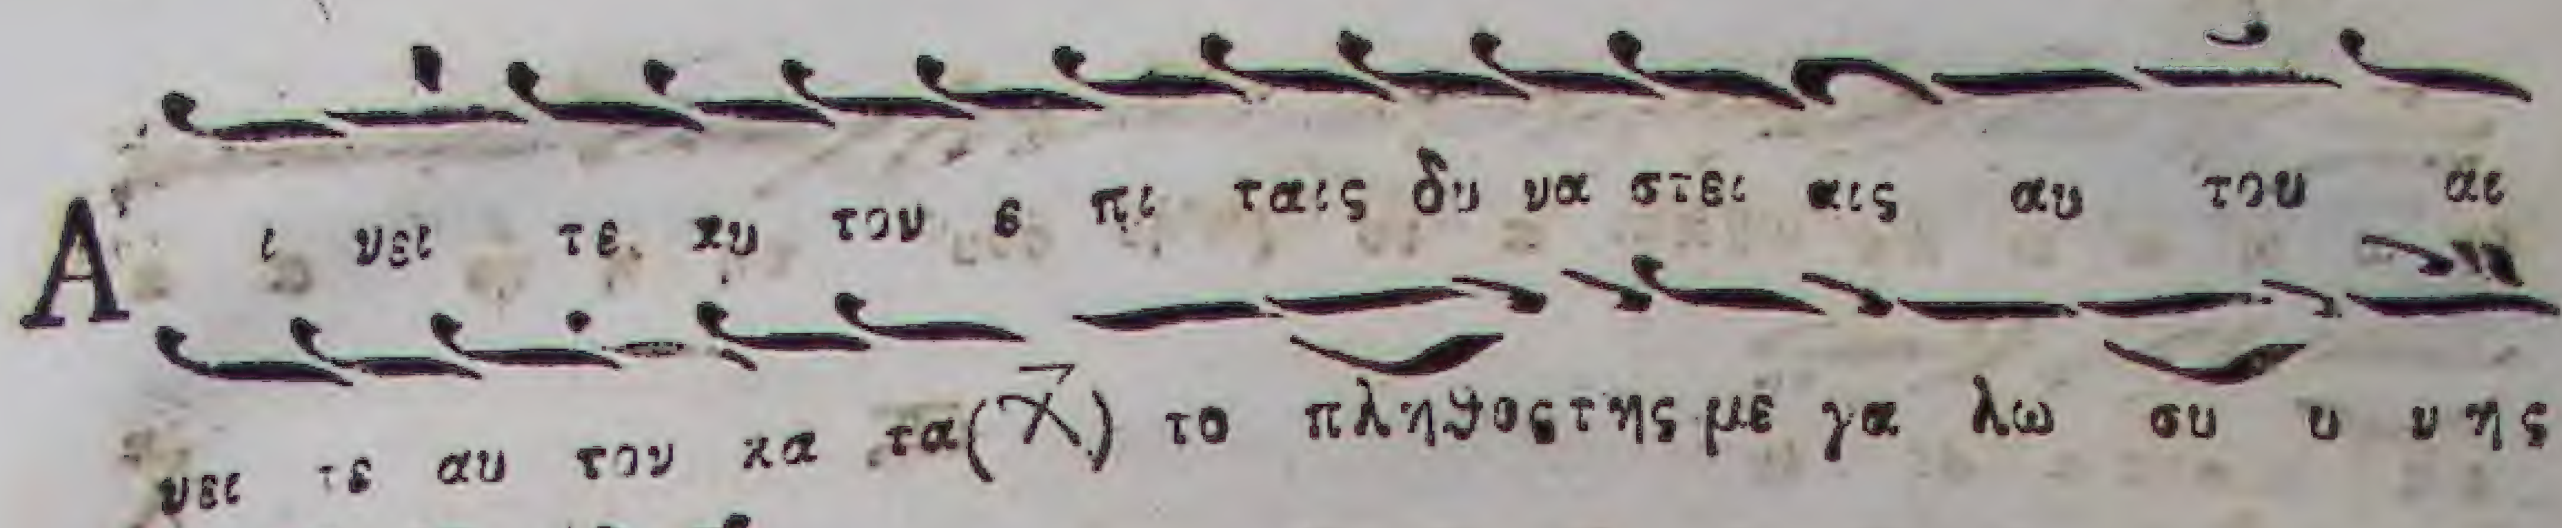 Α ι νει τε αυ τον ε πι ταις δυ να στει αις αυ του αι
νει τε αυ τον κα τα (χ) το πληθος της με γα λω συ υ νης